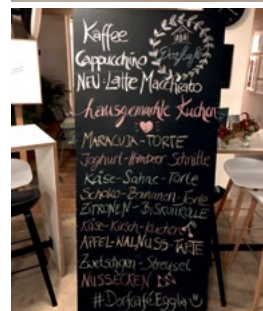 Kaffee
Dorfcafé
Cappucchino
NEU: Latte Macchiato
hausgemachte Kuchen
MARACUJA-TORTE
Joghurt-Himbeer Schnitte
Käse-Sahne-Torte
Schoko-Bananen-Torte
ZITRONEN-BISKUITROLLE
Käse-Kirsch-Kuchen
APFEL-WALNUSS-TARTE
Zwetschgen-Streusel
NUSSECKEN
#DorfcaféEggla